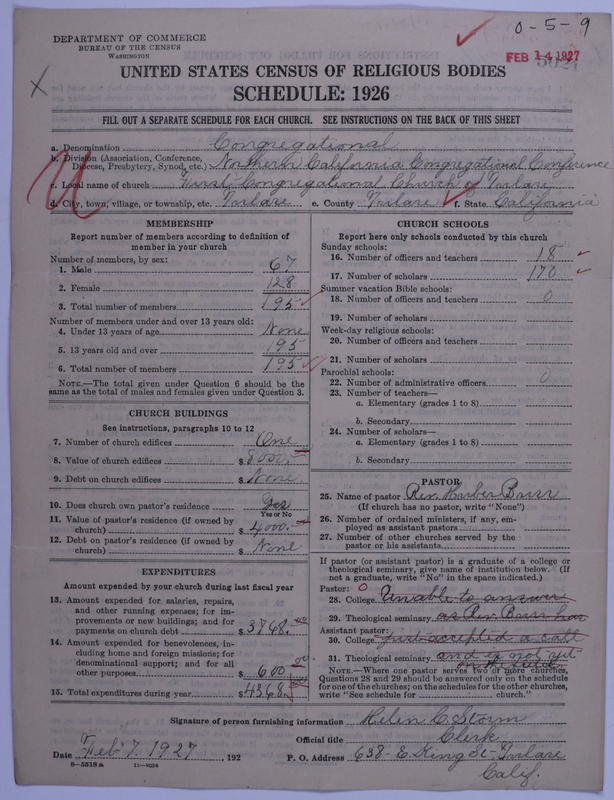 0-5-9
DEPARTMENT OF COMMERCE
BUREAU OF THE CENSUS
WASHINGTON
FEB 14 1927
UNITED STATES CENSUS OF RELIGIOUS BODIES
SCHEDULE: 1926
FILL OUT A SEPARATE SCHEDULE FOR EACH CHURCH. SEE INSTRUCTIONS ON THE BACK OF THIS SHEET
a. Denomination Congregational
b. Division (Association, Conference, Diocese, Presbytery, Synod, etc.) Northern California Congregational Conference
c. Local name of church First Congregational Church of Tulare
d. City, town, village, or township, etc. Tulare e. County Tulare f. State California
MEMBERSHIP
Report number of members according to definition of
member in your church
Number of members, by sex:
1. Male 67
2. Female 128
3. Total number of members 195
Number of members under and over 13 years old:
4. Under 13 years of age None
5. 13 years old and over 195
6. Total number of members 195
NOTE.—The total given under Question 6 should be
same as the total of males and females given under Question 3.
CHURCH BUILDINGS
See instructions, paragraphs 10 to 12
7. Number of church edifices One
8. Value of church edifices $ 8000.
9. Debt on church edifices $ None
10. Does church own pastor's residence Yes
Yes or No
11. Value of pastor's residence (if owned by
church) $ 4000.
12. Debt on pastor's residence (if owned by
church) $ None
EXPENDITURES
Amount expended by your church during last fiscal year
13. Amount expended for salaries, repairs,
and other running expenses; for im-
provements or new buildings; and for
payments on church debt $ 3768.00
14. Amount expended for benevolences, in-
cluding home and foreign missions; for
denominational support; and for all
other purposes $ 600.00
15. Total expenditures during year $ 4368.00
CHURCH SCHOOLS
Report here only schools conducted by this church
Sunday schools:
16. Number of officers and teachers 18
17. Number of scholars 170
Summer vacation Bible schools:
18. Number of officers and teachers 0
19. Number of scholars
Week-day religious schools:
20. Number of officers and teachers
21. Number of scholars
Parochial schools:
22. Number of administrative officers 0
23. Number of teachers—
a. Elementary (grades 1 to 8)
b. Secondary
24. Number of scholars—
a. Elementary (grades 1 to 8)
b. Secondary
PASTOR
25. Name of pastor Rev. Burr
(If church has no pastor, write "None")
26. Number of ordained ministers, if any, em-
ployed as assistant pastors
27. Number of other churches served by the
pastor or his assistants
If pastor (or assistant pastor) is a graduate of a college or
theological seminary, give name of institution below. (If
not a graduate, write "No" in the space indicated.)
Pastor: 0
28. College Unable to answer
29. Theological seminary as Rev. Burr has
Assistant pastor:
30. College just accepted a call
31. Theological seminary and is not yet
on the field.
NOTE.—Where one pastor serves two or more churches,
Questions 28 and 29 should be answered only on the schedule
for one of the churches; on the schedules for the other churches,
write "See schedule for church."
Signature of person furnishing information Helen C. Storm
Official title Clerk
Date Feb 7. 1927, 192
P. O. Address 638- E. King St- Tulare
Calif.
8-5518a 11-9034